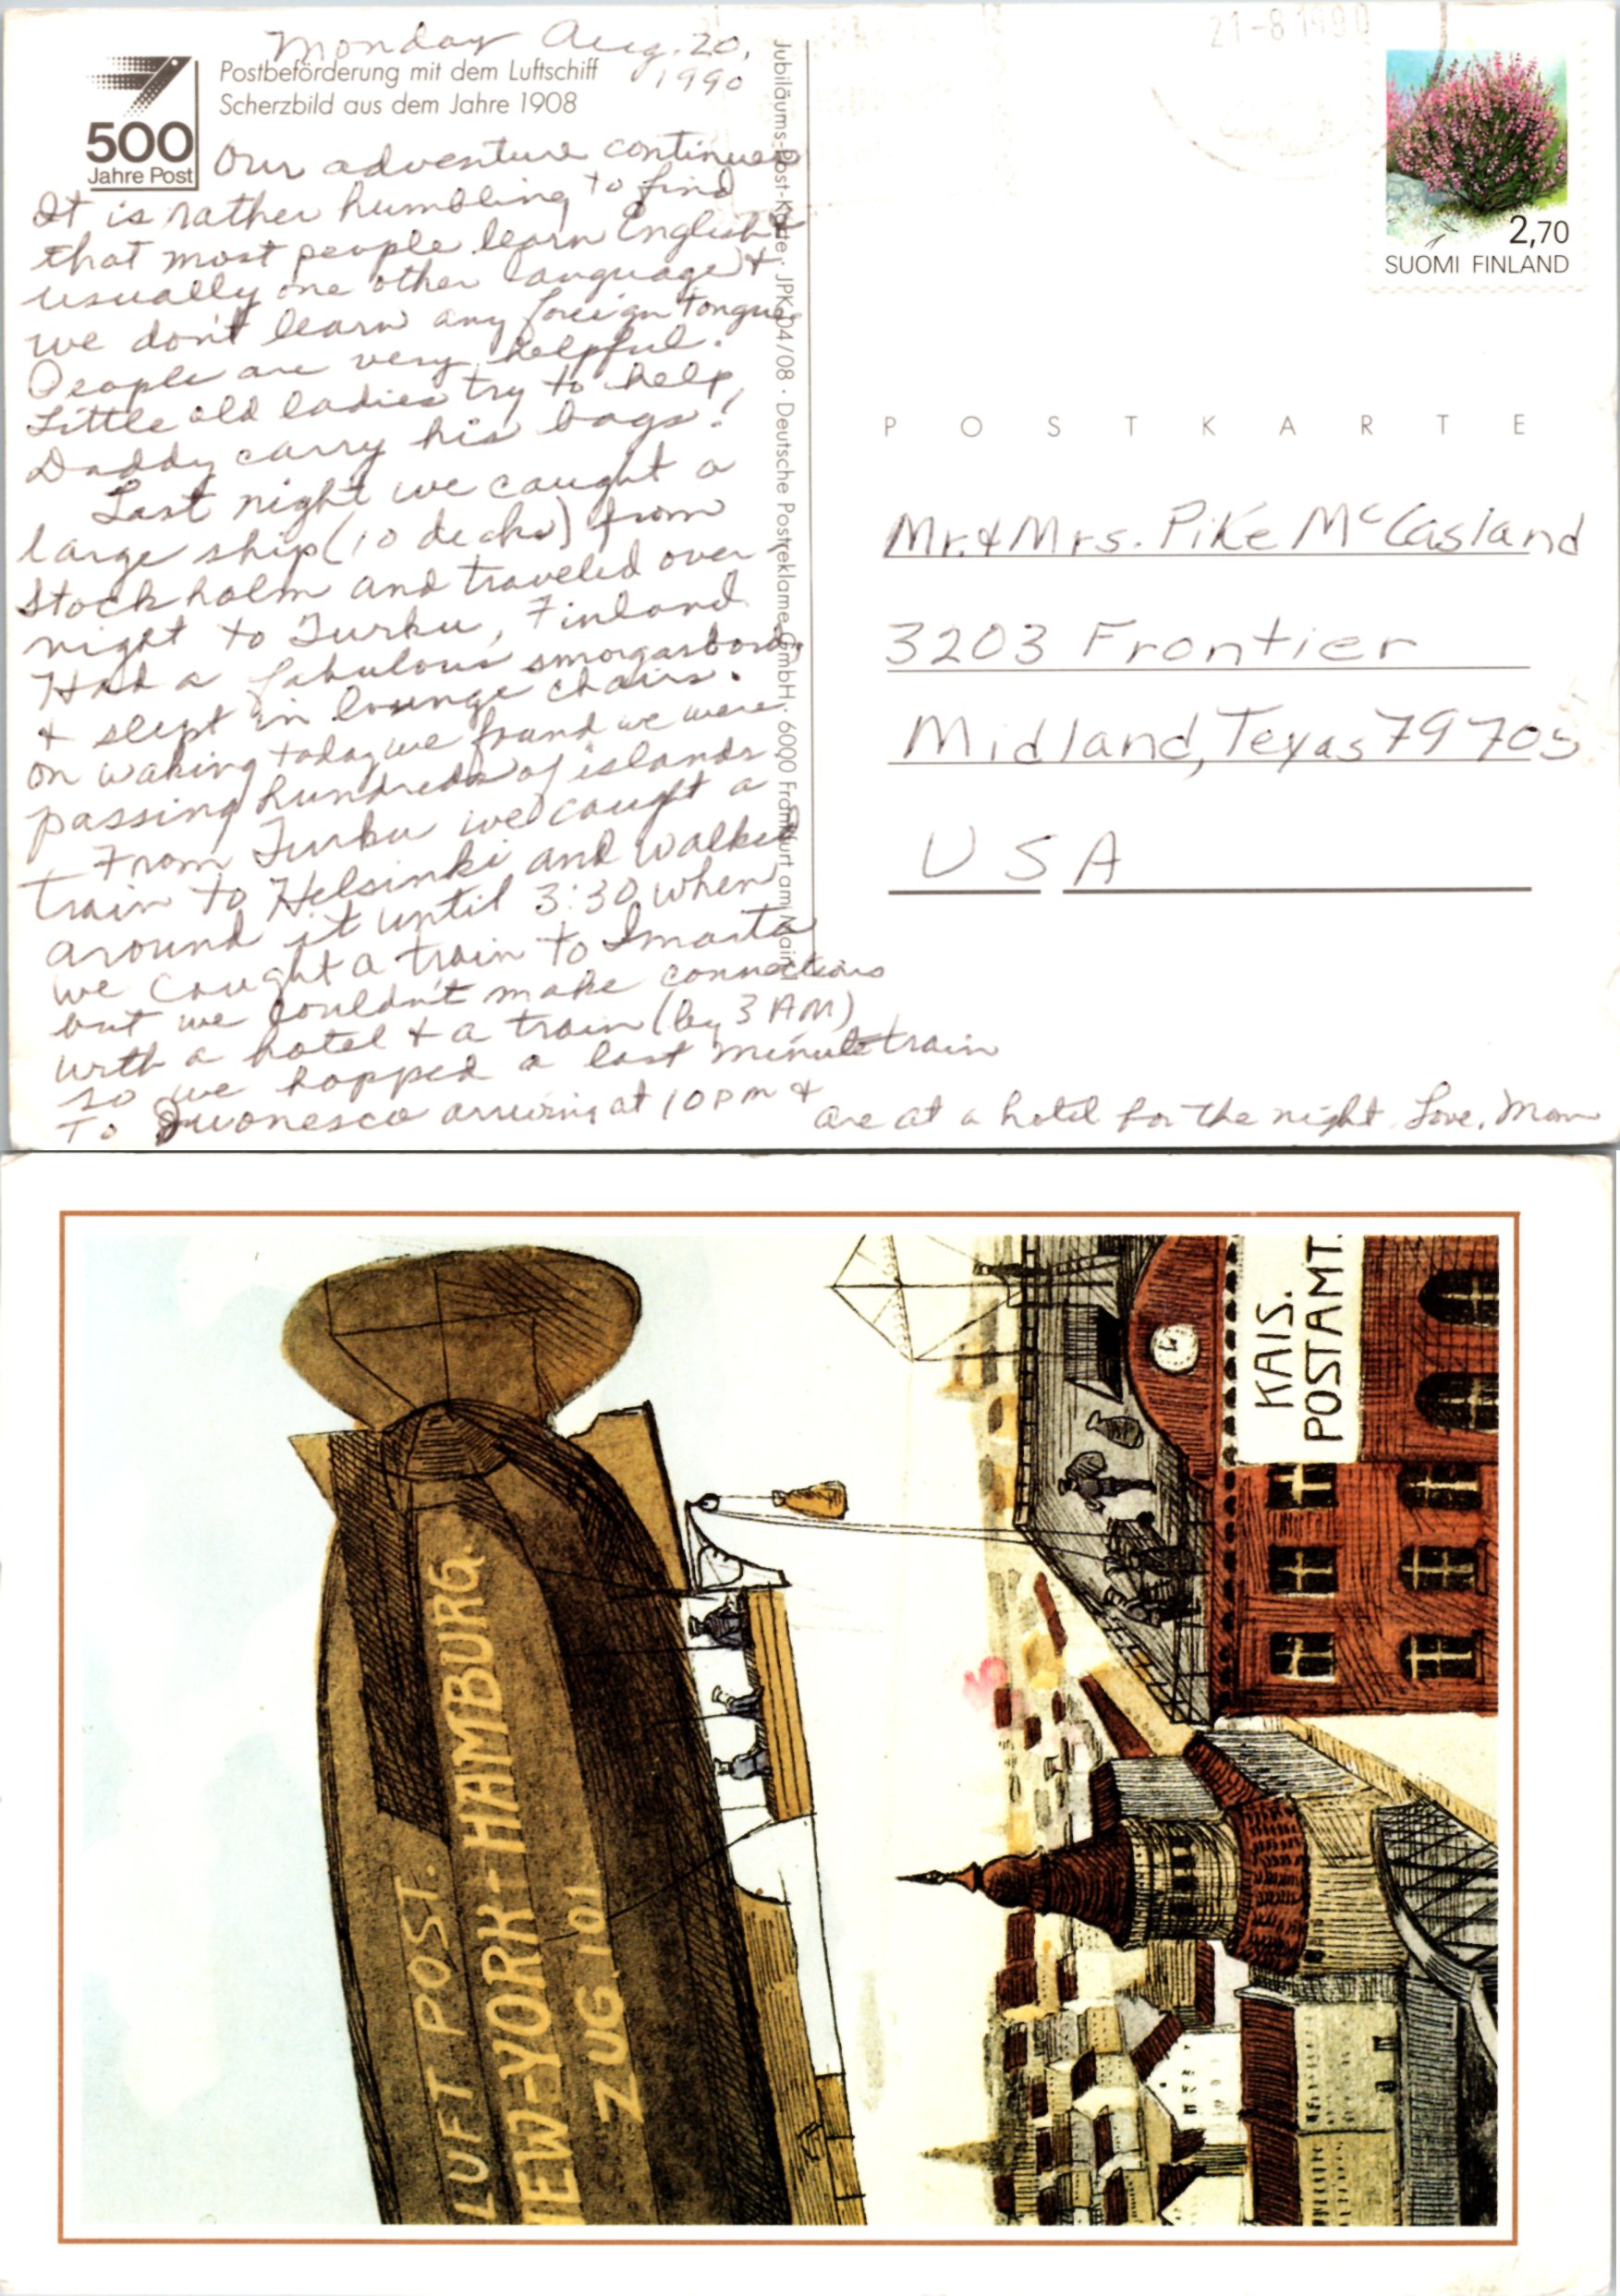 Monday Aug. 20,
1990
Postbeförderung mit dem Luftschiff
Scherzbild aus dem Jahre 1908
500
Jahre Post
Our adventure continues
It is rather humbling to find
that most people learn English &
usually one other language &
we don't learn any foreign tongue.
People are very helpful.
Little old ladies try to help
Daddy carry his bags!
Last night we caught a
large ship (10 decks) from
Stockholm and traveled over
night to Turku, Finland
Had a fabulous smorgasbord,
& slept in lounge chairs.
On waking today we found we were
passing hundreds of islands
From Turku we caught a
train to Helsinki and walked
around it until 3:30 when
we caught a train to Imarta
but we couldn't make connections
with a hotel & a train (by 3 AM)
so we hopped a last minute train
To arriving at 10 pm &
are at a hotel for the night. Love, Mom
Jubiläums-Post-Karte · JPK 04/08 · Deutsche Postreklame GmbH · 6000 Frankfurt am Main 1
21-8 1990
2,70
SUOMI FINLAND
POSTKARTE
Mr. & Mrs. Pike McCasland
3203 Frontier
Midland, Texas 79705
USA
LUFT POST.
NEW-YORK-HAMBURG.
ZUG. 101
KAIS.
POSTAMT.